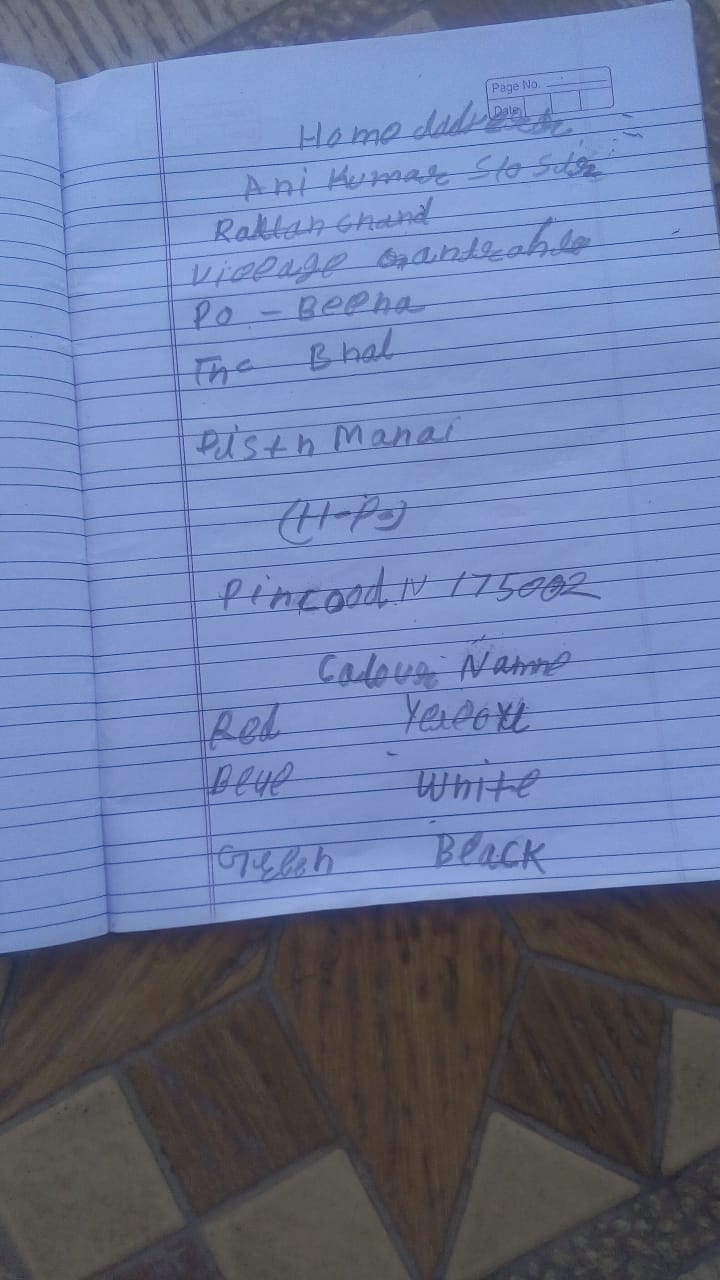 Page No.
Date
Home
Ani Kumar S/o
Rattan Chand
Village
Po - Beena
The Bhal
Distn Manai
(H-P)
Pincood N 175002
Calour Name
Red Yellow
Blue White
Green Black